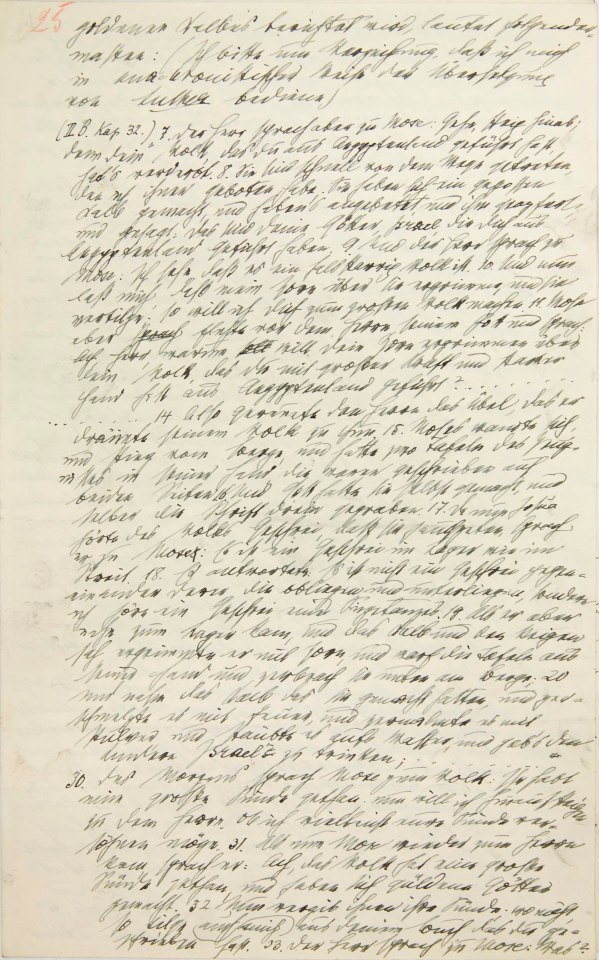 25
goldenen Kalbes berichtet wird, lautet folgender-
massen: (Ich bitte um Verzeihung, daß ich mich
in anachronistischer Weise der Übersetzung
von Luther bediene)
(II. B. Kap. 32.) 7. Der Herr sprach aber zu Mose: Gehe, steig hinab;
denn dein Volk, das du aus Aegyptenland geführt hast,
hat's verderbt. 8. Sie sind schnell von dem Wege getreten,
den ich ihnen geboten habe. Sie haben sich ein gegossen
Kalb gemacht, und haben's angebetet und ihm geopfert
und gesagt: Das sind deine Götter, Israel, die dich aus
Aegyptenland geführt haben. 9 Und der Herr sprach zu
Mose: Ich sehe, daß es ein halsstarrig Volk ist. 10 Und nun
laß mich, daß mein Zorn über sie ergrimme und sie
vertilge; so will ich dich zum großen Volk machen 11. Mose
aber flehte vor dem Herrn seinem Gott und sprach:
Ach Herr warum will dein Zorn ergrimmen über
dein Volk, das du mit großer Kraft und starker
Hand hast aus Aegyptenland geführt? . . . . . . . . .
. . . . . . . . 14 Also gereuete den Herrn das Übel, das er
dräuete seinem Volk zu thun. 15. Moses wandte sich,
und stieg vom Berge und hatte zwo Tafeln des Zeug-
nises in seiner Hand, die waren geschrieben auf
beiden Seiten. 16 Und Gott hatte sie selbst gemacht, und
selber die Schrift drein gegraben. 17. Da nun Josua
hörte des Volks Geschrei, daß sie jauchzeten, sprach
er zu Mose: Es ist ein Geschrei im Lager wie im
Streit. 18. Er antwortete: Es ist nicht ein Geschrei gegen-
einander derer die obliegen und unterliegen, sondern
ich höre ein Geschrei eines Singetanzes. 19. Als er aber
nahe zum Lager kam, und das Kalb und den Reigen
sah, ergrimmte er mit Zorn und warf die Tafeln aus
seiner Hand und zerbrach sie unten am Berge. 20
und nahm das Kalb das sie gemacht hatten, und zer-
schmelzte es mit Feuer, und zermalmte es mit
Pulver und staubte es aufs Wasser, und gab's den
Kindern Israel's zu trinken; . . . . . . . . .
30. Des Morgens sprach Mose zum Volk: Ihr habt
eine große Sünde gethan, nun will ich hinaufsteigen
zu dem Herrn, ob ich vielleicht eure Sünde ver-
söhnen möge. 31. Als nun Mose wieder zum Herrn
kam sprach er: Ach, das Volk hat eine große
Sünde gethan, und haben sich güldene Götter
gemacht. 32. Nun vergib ihnen ihre Sünde; wo nicht,
so tilge auch mich aus deinem Buch das du ge-
schrieben hast. 33. Der Herr sprach zu Mose: Was?